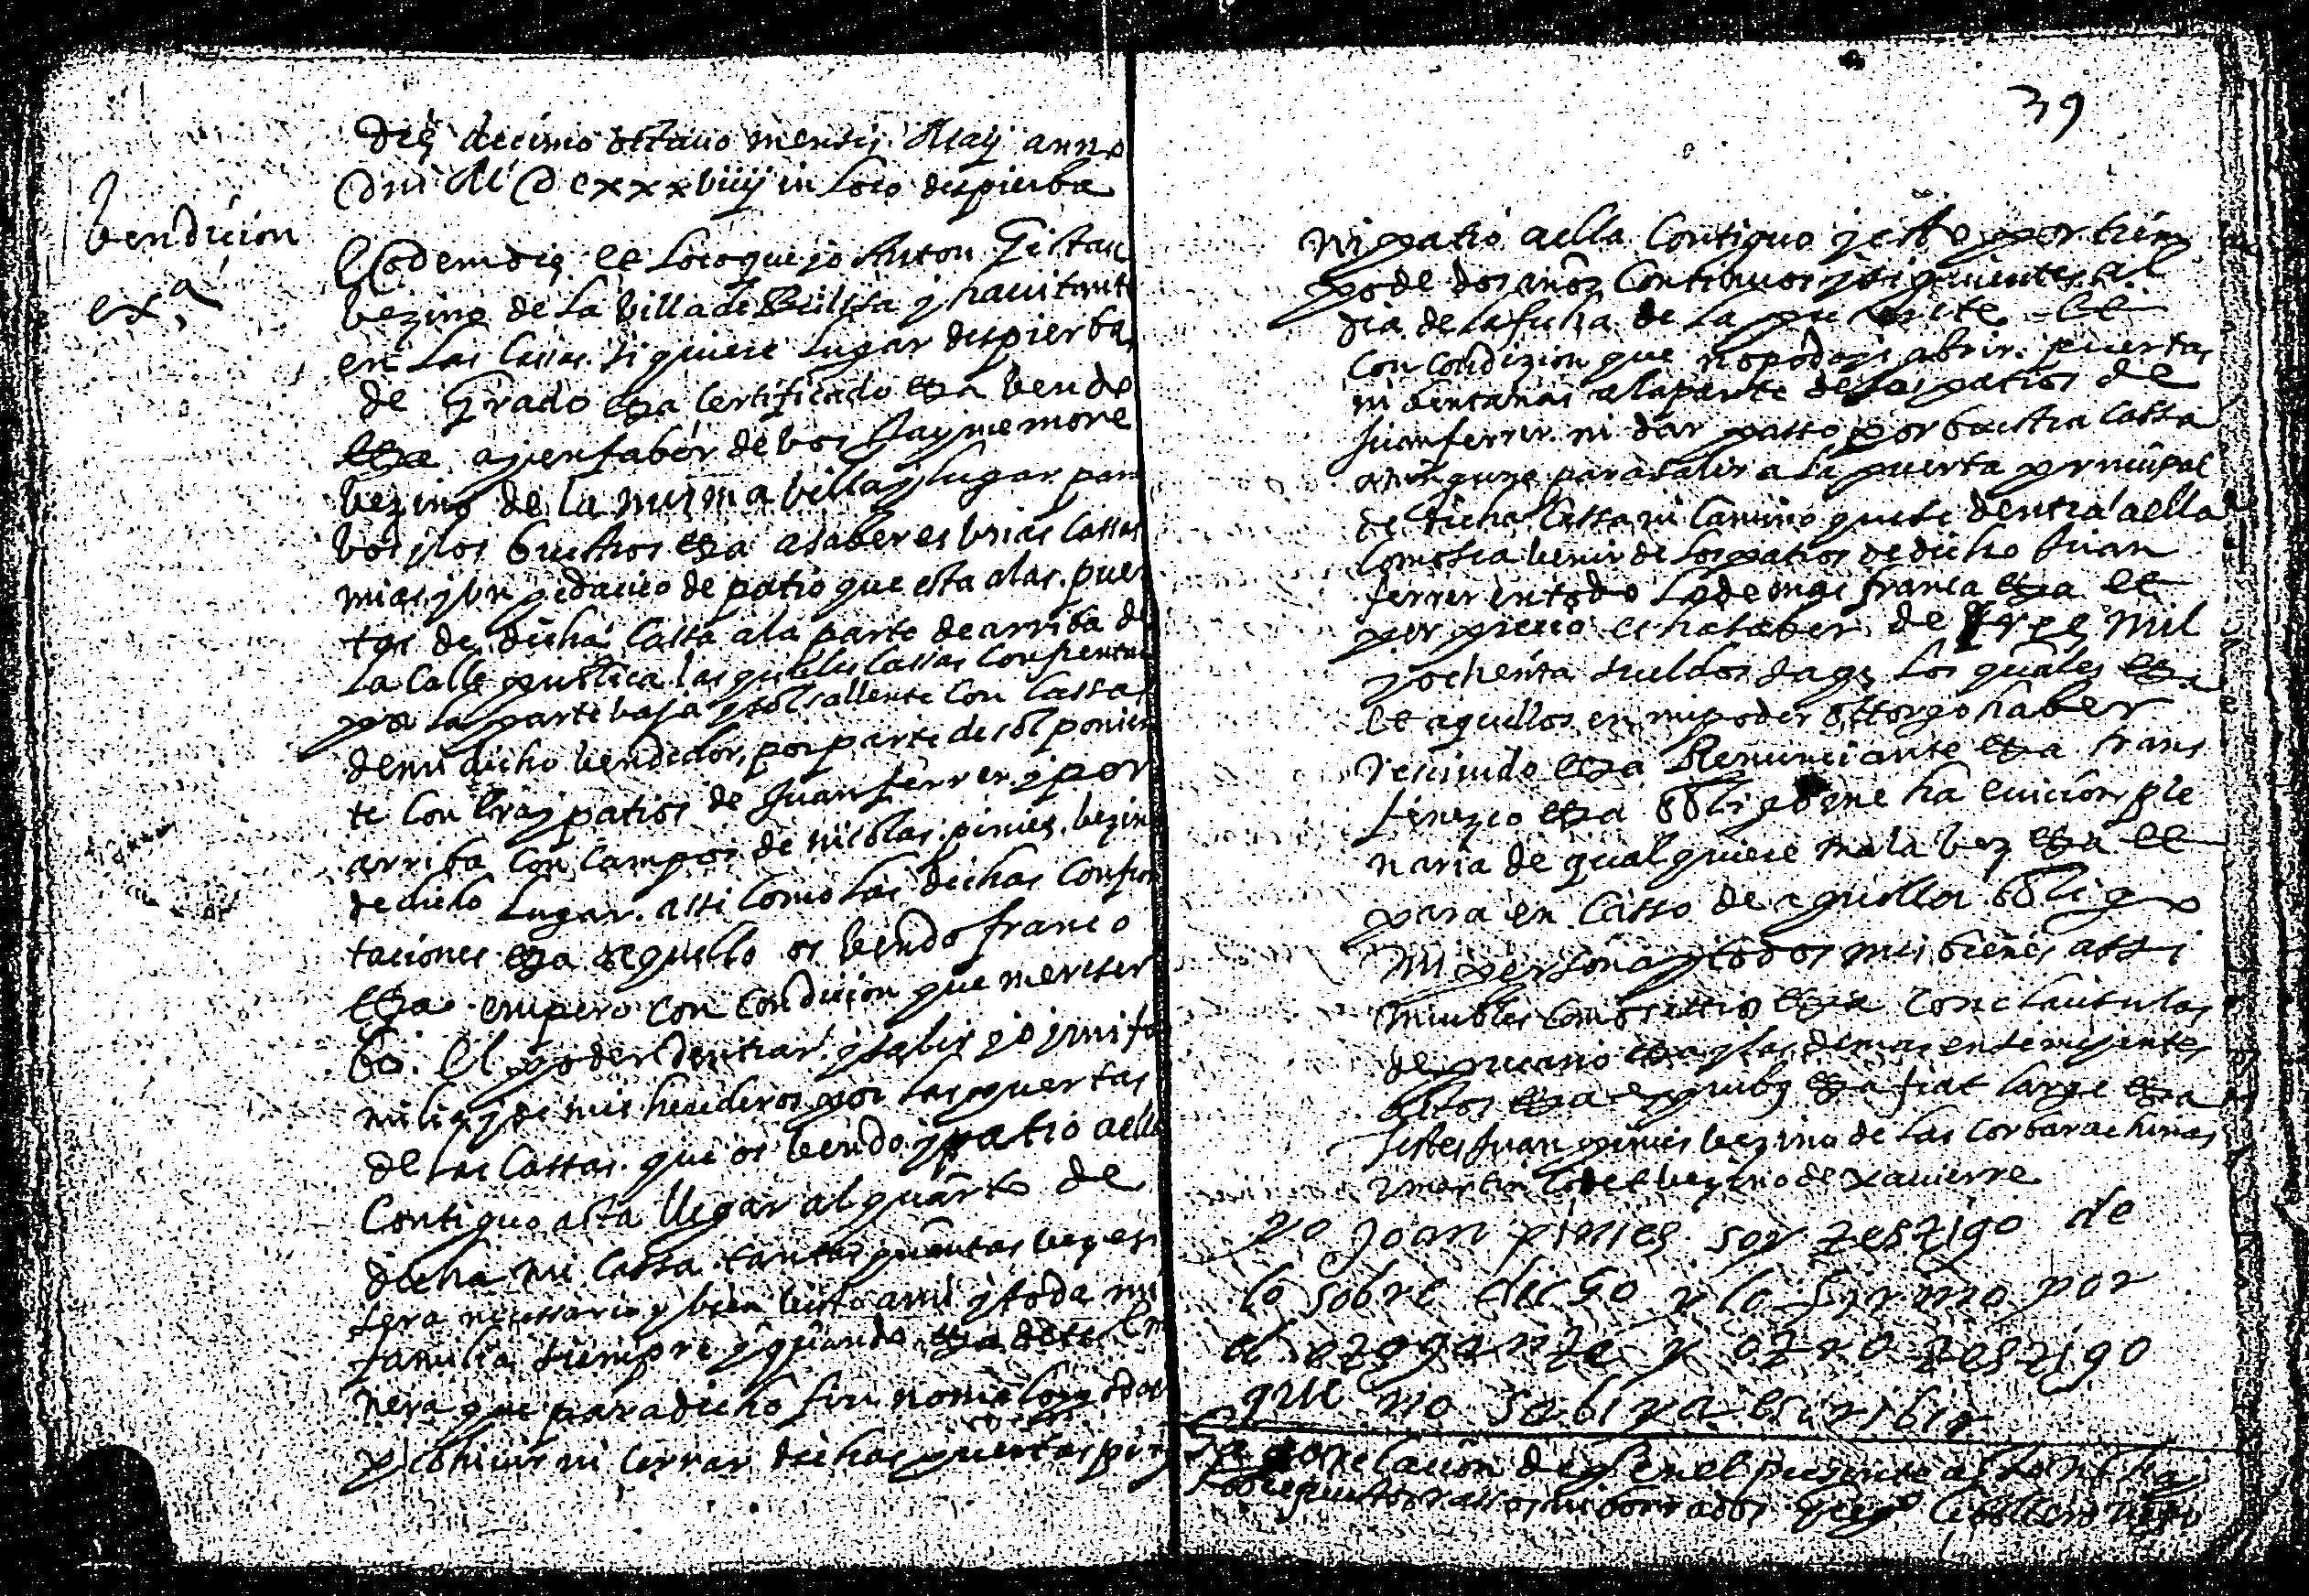 Die decimo octauo mensis Maij anno
Dni M D C xxxviiij in loco despierba
bendicion
exᵃ
Eodem die et loco que yo Anton Gistau
bezino de la billa de Bielssa y hauitante
en las casas siquiere lugar despierba
de Grado etza certificado etza bendo
etza ajenfabor de bos Jayme more
bezino de la misma billa y lugar para
bos y los buestros etza asaber es unas cassas
mias y un pedacico de patio que esta a las puer
tas de dicha cassa a la parte de arriba de
la calle publica las quales cassas confrentan
por la parte baja y sol sallente con cassas
de mi dicho bendedor, por parte de sol ponien
te con hera y patios de Juan ferrer y por
arriba con campos de nicolas pinies bezino
de dicho lugar. assi como las dichas confron
taciones etza de quello os bendo franco
etza empero con condicion que me reser
bo el poder dentrar y salir yo y mi fa
milia y de mis herederos por las puertas
de las cassas que os bendo y patio a ella
contiguo asta llegar al quarto de
dicha mi cassa tantas quantas bezes
sera necessario y bien bisto a mi y toda mi
familia siempre y quando etza de tal ma
nera que para dicho fin no me lo podais
prohiuir ni cerrar dichas puertas
39
ni patio a ella contiguo y esto por tiem
po de dos años continuos y siguientes al
dia de la fecha de la presente et
con condizion que no podays abrir puertas
ni bentanas a la parte de los patios de
Juan ferrer ni dar passo por buestra cassa
a ninguno para salir a la puerta principal
de dicha cassa ni camino que se dentra a ella
como sea benir de los patios de dicho Juan
ferrer en todo lo demas franca etza et
por precio es hasaber de tres mil
y ochenta sueldos Jags los quales etza
et aquellos en mi poder ottorgo haber
recibido etza Renunciante etza trans
firezco etza obligome ha euicion ple
naria de qualquiere mala bez etza et
para en casso de aquella obligo
mi persona y todos mis bienes assi
muebles como sittios etza con clausulas
de precario etza y las demas en semejantes
actos etza ex quibus etza fiat large etza
testes Juan pinies bezino de las corbarachinas
y martin bezino de xauierre
yo Joan pinies soy testigo de
lo sobre dicho y lo firmo por
el otogante y otro testigo
que no sabian escribir